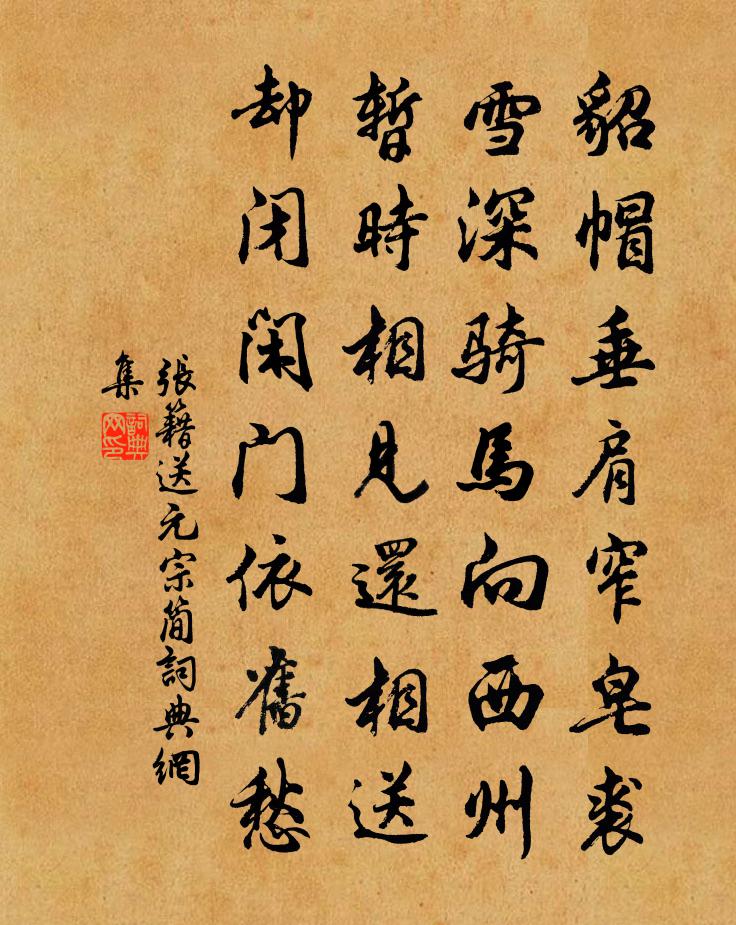 貂帽垂肩窄皂裘
雪深骑馬向西州
暫時相見還相送
却闭閑门依舊愁
張籍送元宗简詞典網
集
詞典
网印